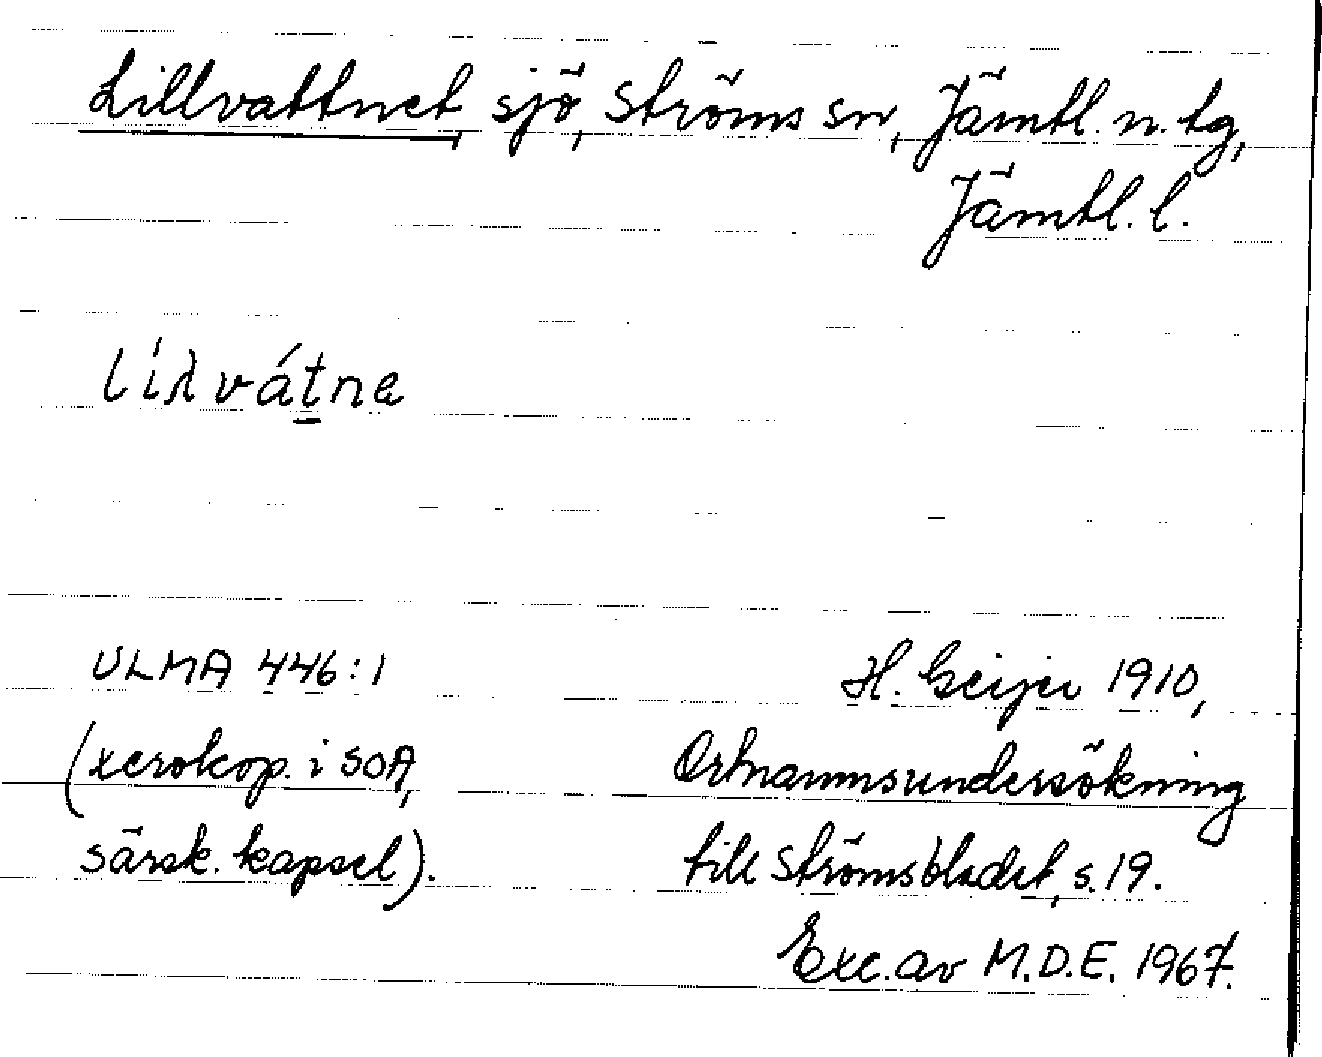 Lillvattnet, sjö, Ströms sn, Jämtl. n. tg,
Jämtl. l.
líλvátne
ULMA 446:1
H. Geijer 1910,
(xerokop. i SOA,
Ortnamnsundersökning
särsk. kapsel).
till Strömsbladet, s. 19.
Exc. av M.D.E. 1967.